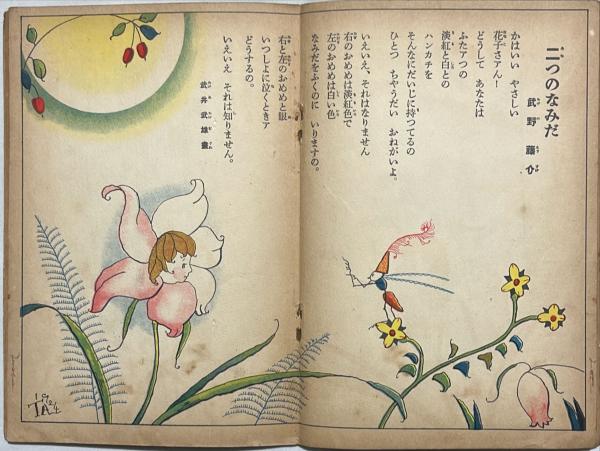 二つのなみだ
武野藤介
かはいい やさしい
花子さアん!
どうして あなたは
ふたアつの
淡紅と白との
ハンカチを
そんなにだいじに持つてるの
ひとつ ちやうだい おねがいよ。
いえいえ、それはなりません
右のおめめは淡紅色で
左のおめめは白い色
なみだをふくのに いりますの。
右と左のおめめと眼
いつしよに泣くときア
どうするの。
いえいえ それは知りません。
武井武雄畫